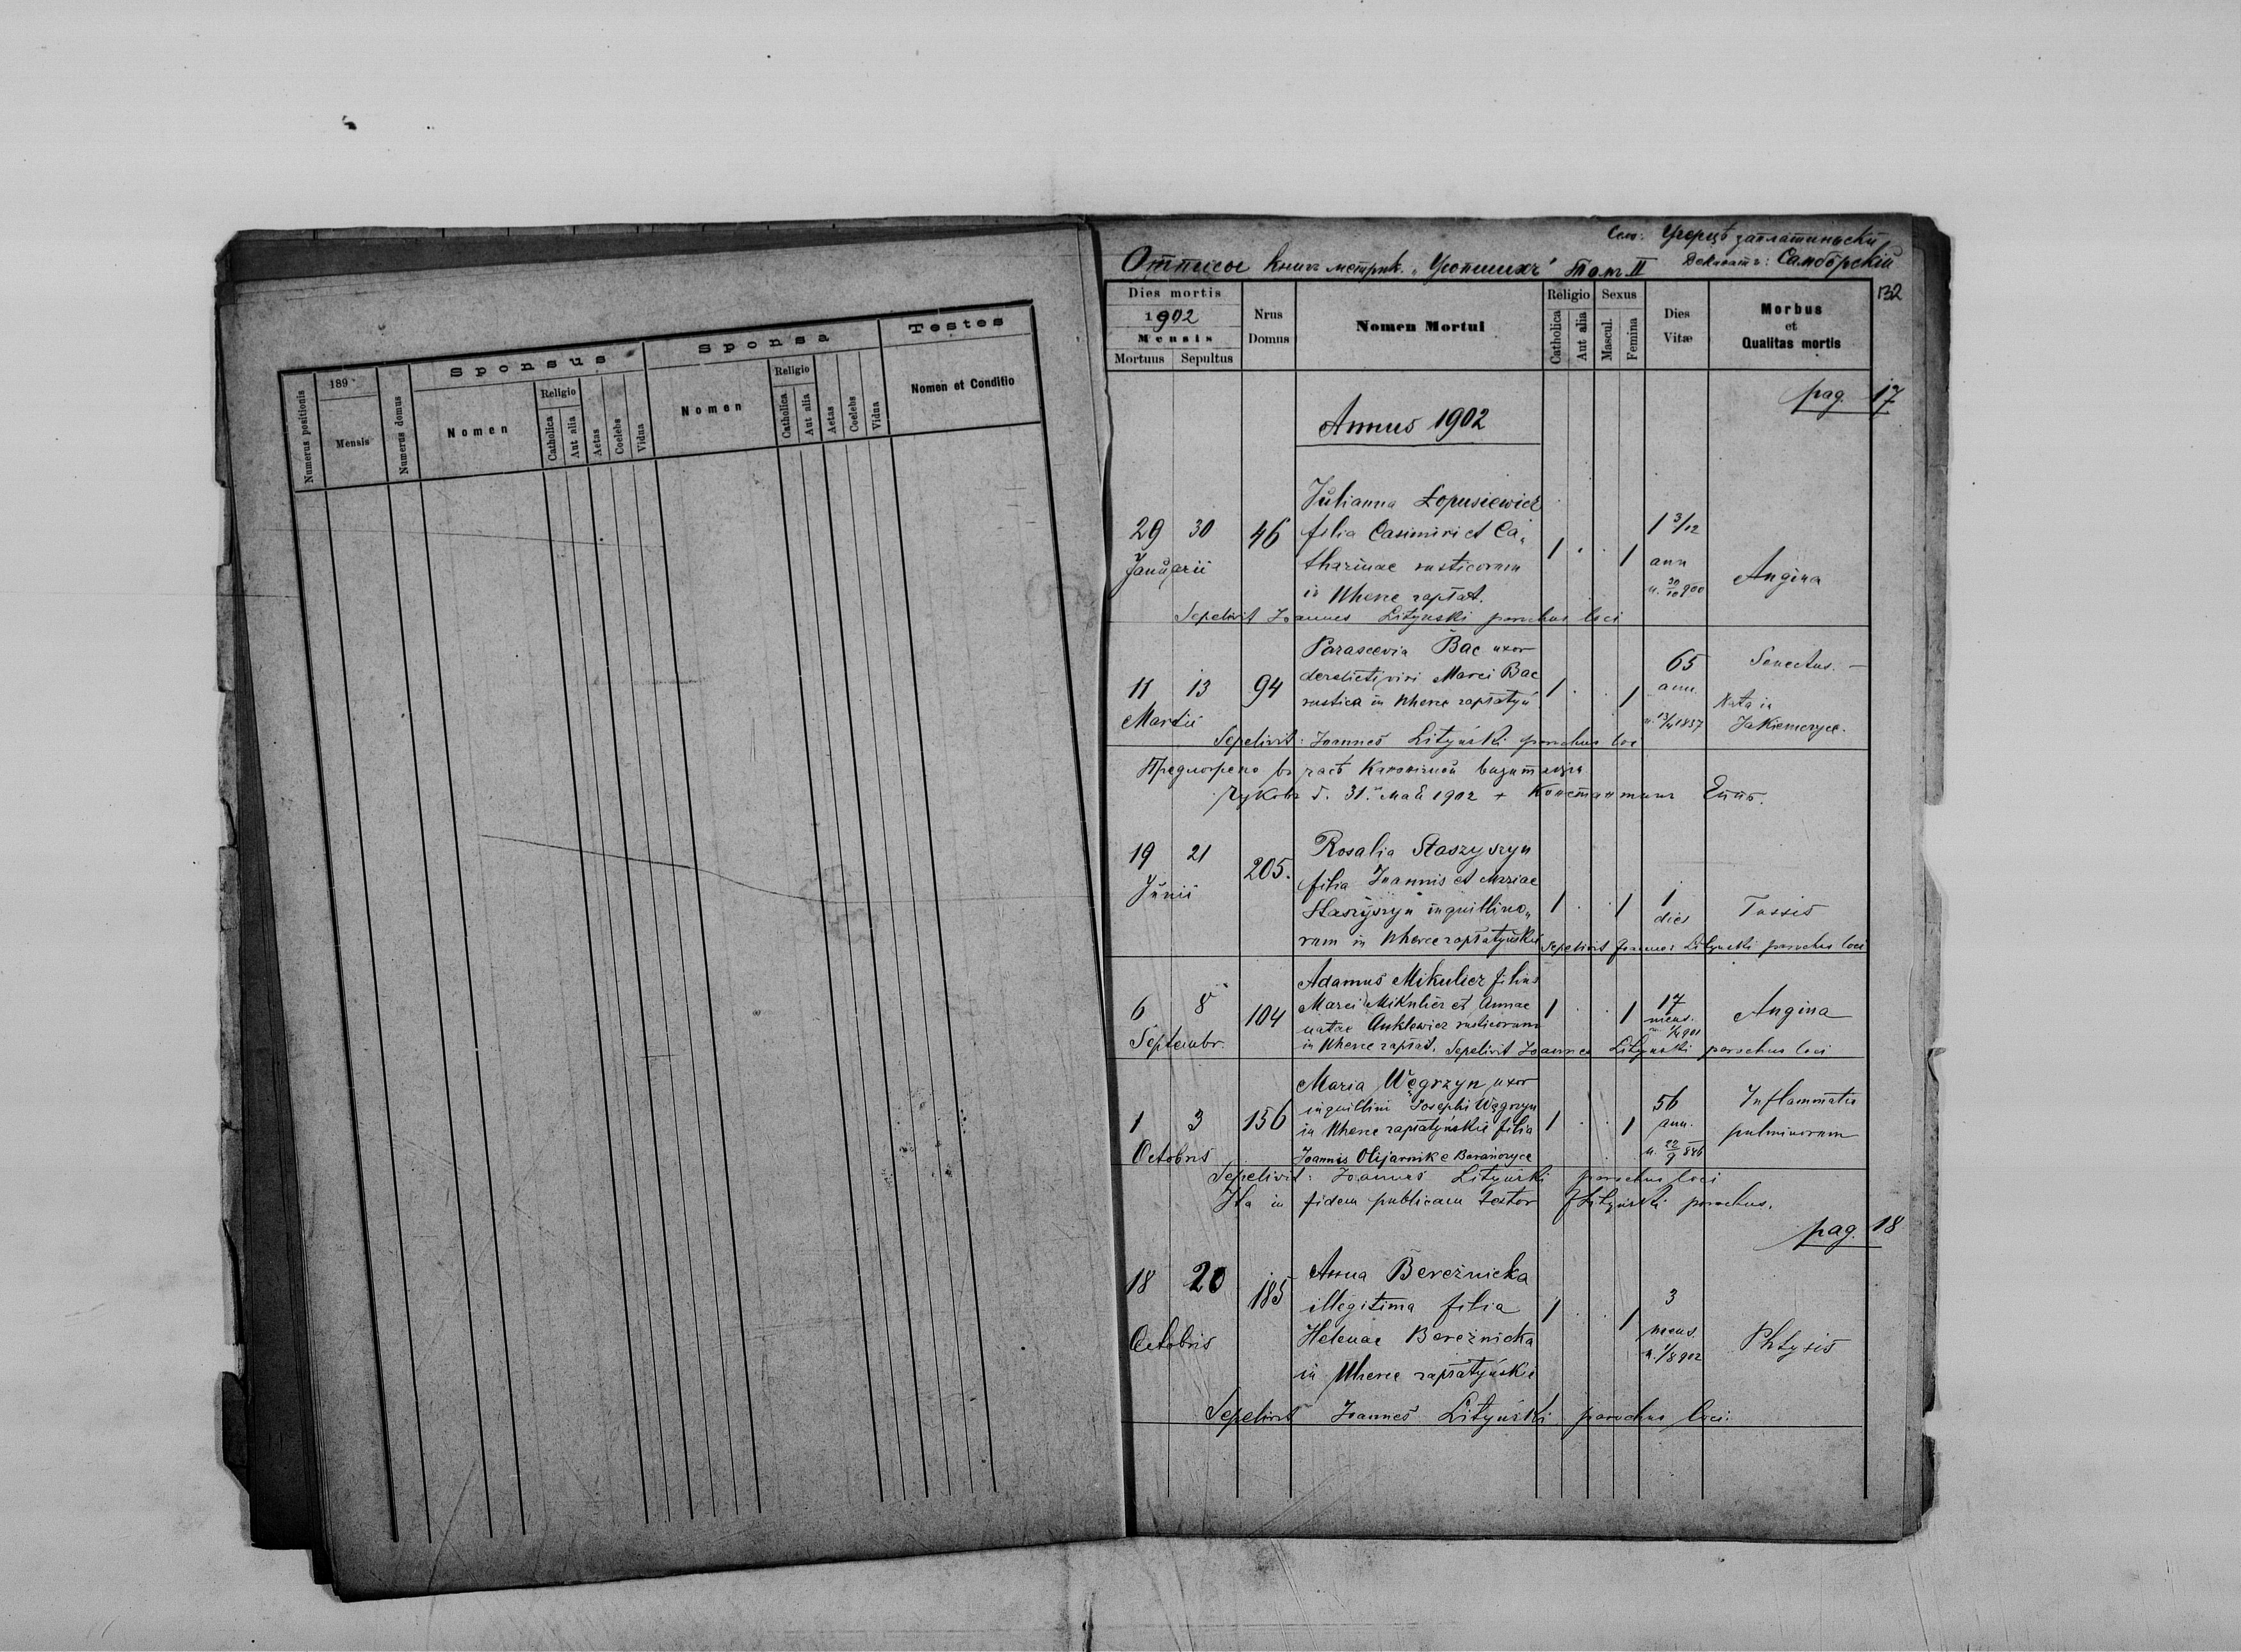 Sponsus
Sponsa
Testes
Numerus positionis
189
Mensis
Numerus domus
Nomen
Religio
Catholica
Aut alia
Aetas
Coelebs
Vidua
Nomen
Religio
Catholica
Aut alia
Aetas
Coelebs
Vidua
Nomen et Conditio
Село:
Деканатъ: Самборскій
Отписъ книгъ метрик. „Усопшихъ“ Том II
132
Dies mortis
1902
Mensis
Mortuus Sepultus
Nrus Domus
Nomen Mortui
Religio
Catholica
Aut alia
Sexus
Mascul.
Femina
Dies Vitæ
Morbus
et
Qualitas mortis
pag. 17
Annus 1902
Julianna Łopusiewicz
29 30 46 filia Casimiri et Ca„ 1 . . 1 1 3/12
Januarii tharinae rusticorum ann Angina
in Uherce zapłat. n. 30/10 900
Sepelivit Joannes Lityński parochus loci
Parascevia Bac uxor 65 Senectus. –
11 13 94 derelicti viri Marci Bac 1 . . 1 ann.
rustica in Uherce zapłatyń Nata in
Martii 1837
Sepelivit: Joannes Lityński parochus loc
31. Маꙗ 1902 + Константинъ Епп.
19 21 205. Rosalia Staszyszyn
Junii filia Joannis et Mariae
Staszyszyn inquilino„ 1 . . 1 1 dies Tussis
rum in Uherce zapłatyńskie Sepelivit Joannes Lityński parochus loci
Adamus Mikulicz filius
6 8 104 Marci Mikulicz et Annae 1 . . 1 17 mens. Angina
natae rusticorum 901
Septembr. in Uherce zapłat. Sepelivit Joannes Lityński parochus loci
Maria Węgrzyn uxor
inquilini Josephi Węgrzyn 56 Inflammatio
1 3 156 in Uherce zapłatyńskie filia 1 . . 1 ann. pulmonorum
Octobris Joannis Olijarnik e n. 22/9 846
Sepelivit: Joannes Lityński parochus loci
Ita in fidem publicam testor JLityński parochus.
pag. 18
18 20 185 Anna Bereżnicka
illegitima filia 1 . . 1 3
Octobris Helenae Bereżnicka mens. Phtysis
in Uherce zapłatyńskie n. 1/8 902
Sepelivit Joannes Lityński parochus loci.